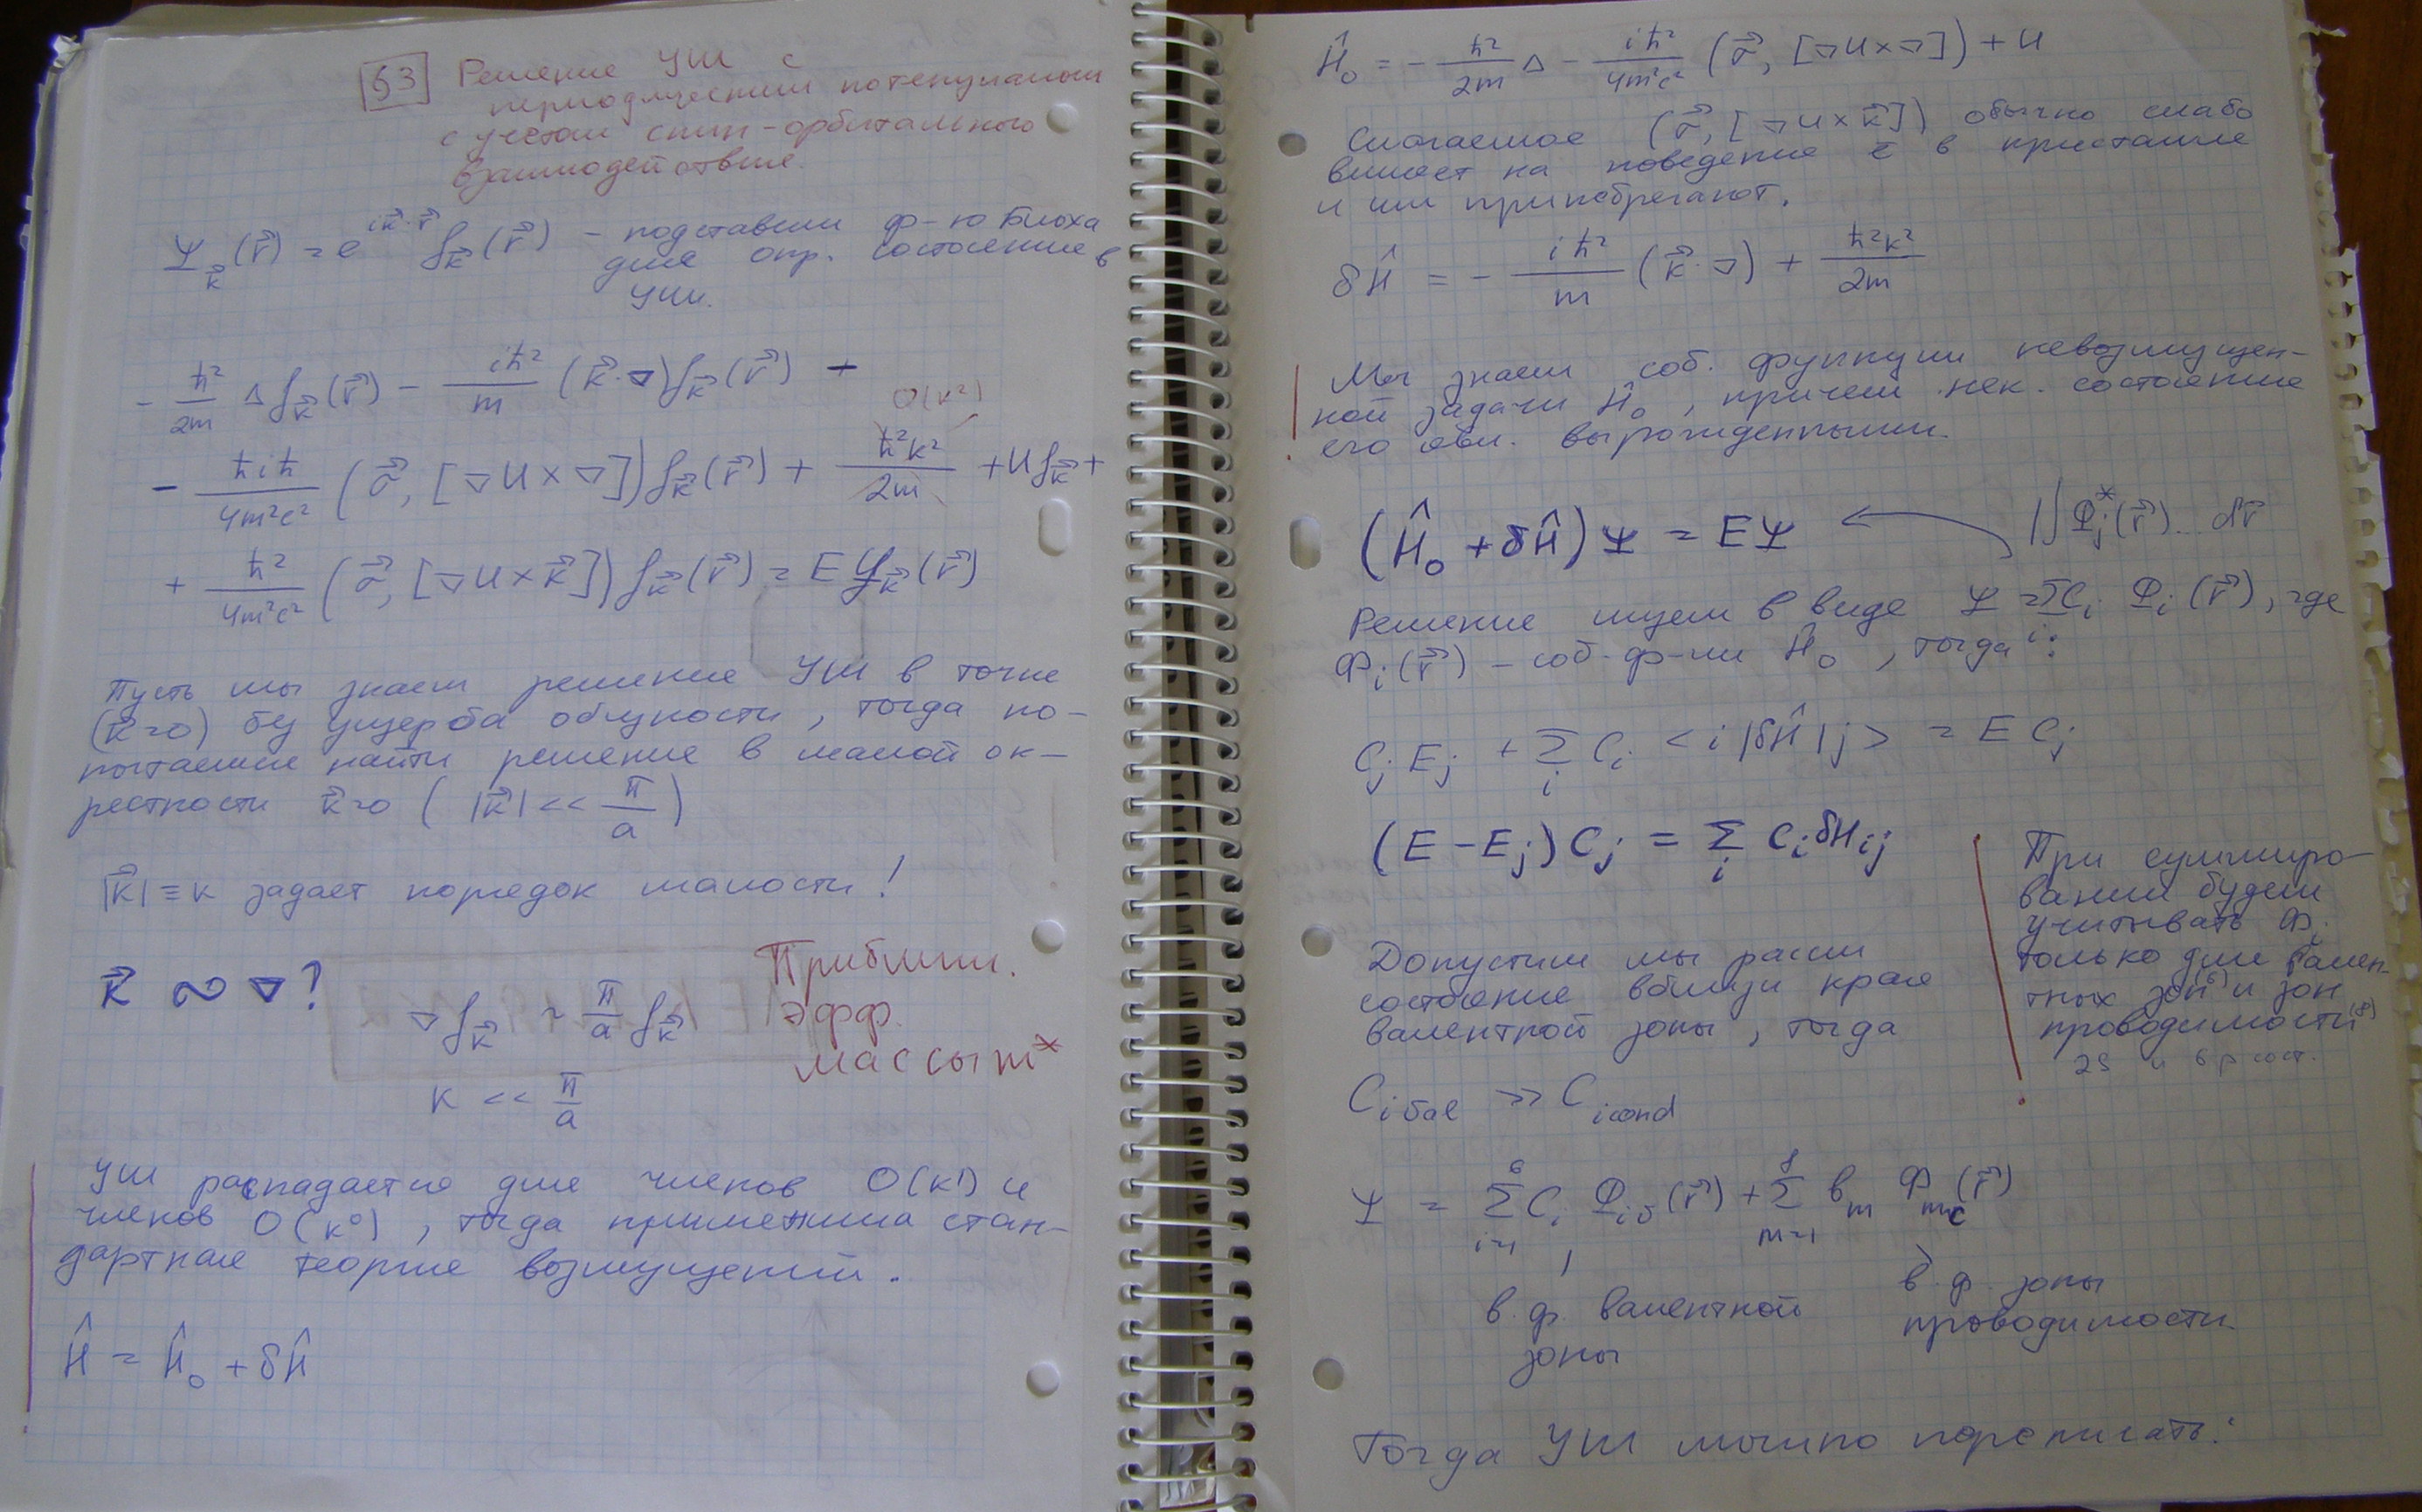 §3 Решение УШ с
периодическим потенциалом
с учётом спин-орбитального
взаимодействия.
Ψ_k⃗(r⃗) = e^{ik⃗·r⃗} f_k⃗(r⃗) – подставим ф-ю Блоха
для опр. состояние в
УШ.
- ℏ²/2m Δf_k⃗(r⃗) - iℏ²/m (k⃗·∇)f_k⃗(r⃗) +
O(k²)
- ℏiℏ/4m²c² (σ⃗, [∇U×∇])f_k⃗(r⃗) + ℏ²k²/2m + Uf_k⃗ +
+ ℏ²/4m²c² (σ⃗, [∇U×k⃗])f_k⃗(r⃗) = EΨ_k⃗(r⃗)
Пусть мы знаем решение УШ в точке
(k⃗=0) без ущерба общности, тогда по-
пытаемся найти решение в малой ок-
рестности k⃗=0 (|k⃗| << π/a)
|k⃗| ≡ k задает порядок малости!
k⃗ ∾ ∇?
∇f_k⃗ ~ π/a f_k⃗
k << π/a
Приближ.
эфф.
массы m*
УШ распадается для членов O(k¹) и
членов O(k⁰), тогда применима стан-
дартная теория возмущений.
Ĥ = Ĥ₀ + δĤ
Ĥ₀ = - ℏ²/2m Δ - iℏ²/4m²c² (σ⃗, [∇U×∇]) + U
Слагаемое (σ⃗, [∇U×k⃗]) обычно слабо
влияет на поведение e̅ в кристалле
и им принебрегают.
δĤ = - iℏ²/m (k⃗·∇) + ℏ²k²/2m
Мы знаем соб. функции невозмущен-
ной задачи Ĥ₀, причем нек. состояние
его явл. вырожденными.
(Ĥ₀ + δĤ)Ψ = EΨ ← |∫Φ_j*(r⃗)... dr⃗
Решение ищем в виде Ψ = Σ_i C_i Φ_i(r⃗), где
Φ_i(r⃗) – соб. ф-ии Ĥ₀, тогда:
C_j E_j + Σ_i C_i <i|δĤ|j> = E C_j
(E - E_j) C_j = Σ_i C_i δH_ij
При суммиро-
вании будем
учитывать Φ_i
только для вален-
тных зон⁽⁶⁾ и зон
проводимости⁽⁸⁾
2s и 6p сост.
Допустим мы расси
состояние вблизи края
валентной зоны, тогда
C_i val >> C_i cond
Ψ = Σ_{i=1}^{6} C_i Φ_iυ(r⃗) + Σ_{m=1}^{8} b_m Φ_mc(r⃗)
в. ф. валентной
зоны
в. ф. зоны
проводимости
Тогда УШ можно переписать: